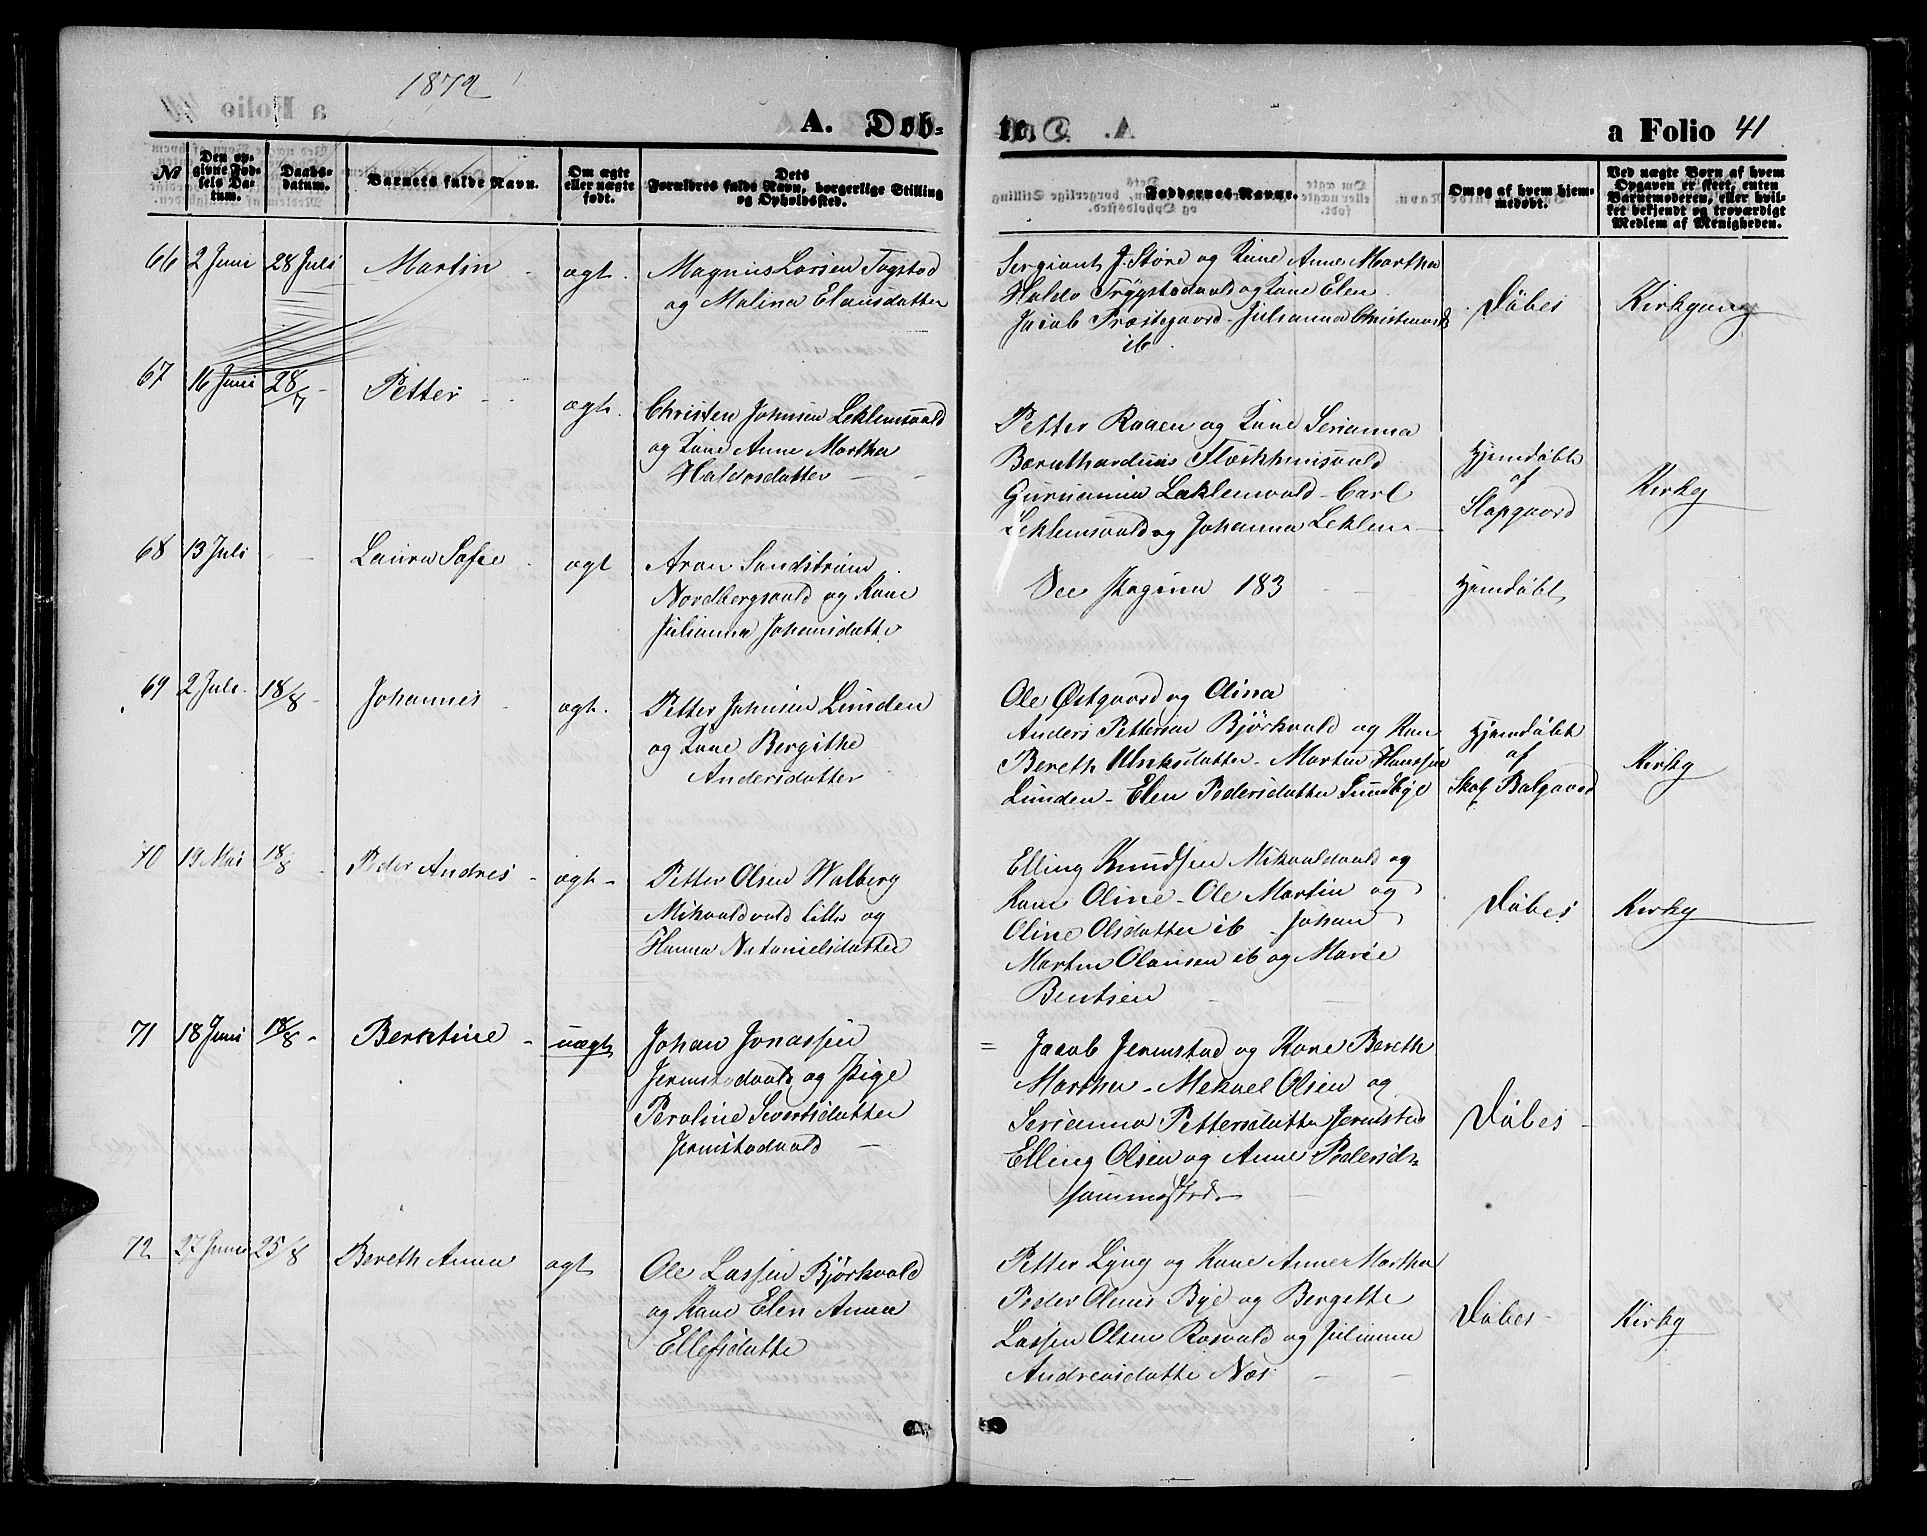 1872
A. Døb-
te.
a Folio 41
No
Den op-
givne Fød-
sels Da-
tum.
Daabs-
datum.
Barnets fulde Navn.
Om ægte
eller uægte
født.
Dets
Forældres fulde Navn, borgerlige Stilling
og Opholdssted.
Faddernes Navne.
Om og af hvem hjem-
medøbt.
Ved uægte Børn af hvem
Opgaven er skeet, enten
Barnemoderen, eller hvil-
ket bekjendt og troværdigt
Medlem af Menigheden.
66 2 Juni 28 Juli Martin - ægt.
Magnus Larsen Togstad
og Malina Elausdatter
Sergiant J. Støre og Kone Anne Martha
Haldo Trygstadvald og Kone Elen
Jacob Præstegaard - Julianna
ib
Døbes
Kirkgang
67 16 Juni 28/7 - Petter - ægt.
Christen Johnsen Leklemsvald
og Kone Anne Martha
Haldosdatter -
Petter Raaen og Kone Serianna
Flæskhusvald
Leklemvald - Carl
Leklemsvald og Johanna Leklem -
Hjemdøbt
af
Kirkg
68 13 Juli - Laura Sofie - ægt
Aron Sandstrøm
Nordbergsvald og Kone
Julianna Johansdatte
See Pagina 183
Hjemdøbt
69 2 Juli 18/8 - Johannes - ægt.
Petter Johnsen Lunden
og Kone Bergithe
Andersdatter
Ole Østgaard og Olina
Anders Pettersen Bjørkvald og Kon
Bereth Ulriksdatter - Martin Hanssen
Lunden - Elen Pedersdatter Lundbye
Hjemdøbt
af
Skol Balgaard
Kirkg
70 19 Mai 18/8 - Peder Andres - ægt -
Petter Olsen Walberg
Mikvoldvald lille og
Hanna Natanielsdatter
Elling Knudsen Mikvoldvald og
Kone Oline - Ole Martin og
Oline Olsdatter ib - Johan
Martin Olausen ib og Marie
Bentsen
Døbes
Kirkg
71 18 Juni 18/8 - Berntine - uægt
Johan Jonassen
Jermstadvald og Pige
Peroline Sivertsdatter
Jermstadvald -
= Jacob Jermstad og Kone Bereth
Martha - Mekael Olsen og
Serianna Pettersdatter Jermstad
Elling Olsen og Anne Pedersd=
sammested -
Døbes -
72 27 Juni 25/8 Bereth Anna ægt
Ole Lassen Bjørkvald
og Kone Elen Anna
Ellefsdatte
Petter Lyng og Kone Anne Martha
Peder Olaus Bye og Bergette
Lassen Olsen Rosvald og Julianna
Andreasdatte Næs - -
Døbes -
Kirkg